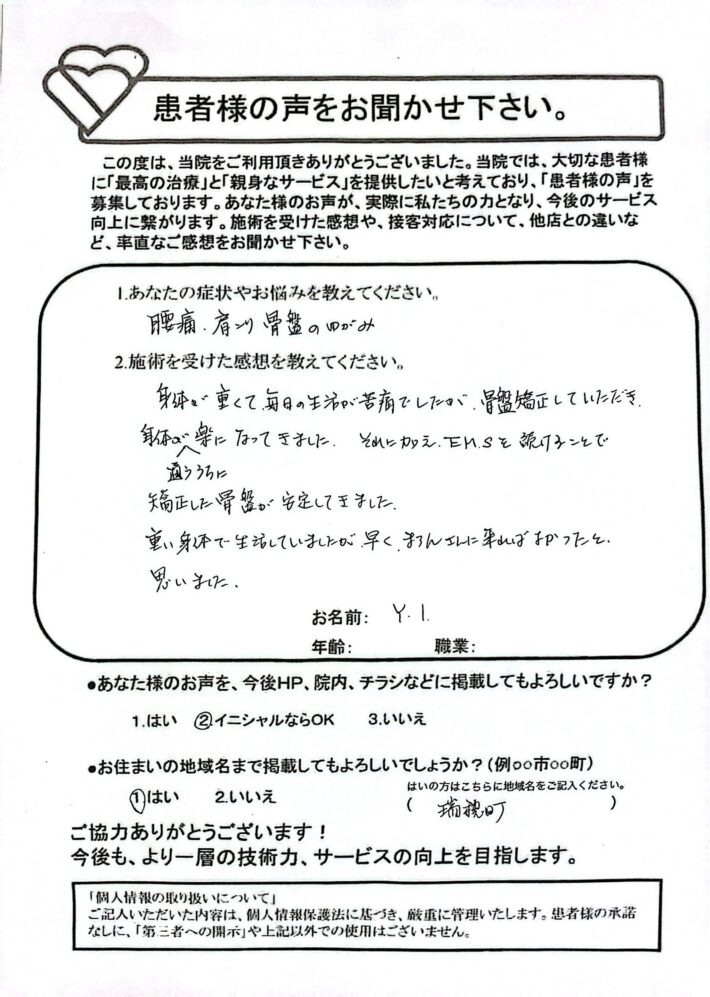 患者様の声をお聞かせ下さい。
この度は、当院をご利用頂きありがとうございました。当院では、大切な患者様
に「最高の治療」と「親身なサービス」を提供したいと考えており、「患者様の声」を
募集しております。あなた様のお声が、実際に私たちの力となり、今後のサービス
向上に繋がります。施術を受けた感想や、接客対応について、他店との違いな
ど、率直なご感想をお聞かせ下さい。
1.あなたの症状やお悩みを教えてください。
腰痛、肩こり 骨盤のゆがみ
2.施術を受けた感想を教えてください。
身体が重くて、毎日の生活が苦痛でしたが、骨盤矯正していただき、
身体が楽になってきました。それに加え、EMSを続けることで
通ううちに
矯正した骨盤が安定してきました。
重い身体で生活していましたが、早く、に来ればよかったと、
思いました。
お名前: Y.I.
年齢: 職業:
●あなた様のお声を、今後HP、院内、チラシなどに掲載してもよろしいですか?
1.はい ②イニシャルならOK 3.いいえ
●お住まいの地域名まで掲載してもよろしいでしょうか?(例○○市○○町)
はいの方はこちらに地域名をご記入ください。
①はい 2.いいえ ( 瑞穂町 )
ご協力ありがとうございます!
今後も、より一層の技術力、サービスの向上を目指します。
「個人情報の取り扱いについて」
ご記入いただいた内容は、個人情報保護法に基づき、厳重に管理いたします。患者様の承諾
なしに、「第三者への開示」や上記以外での使用はございません。